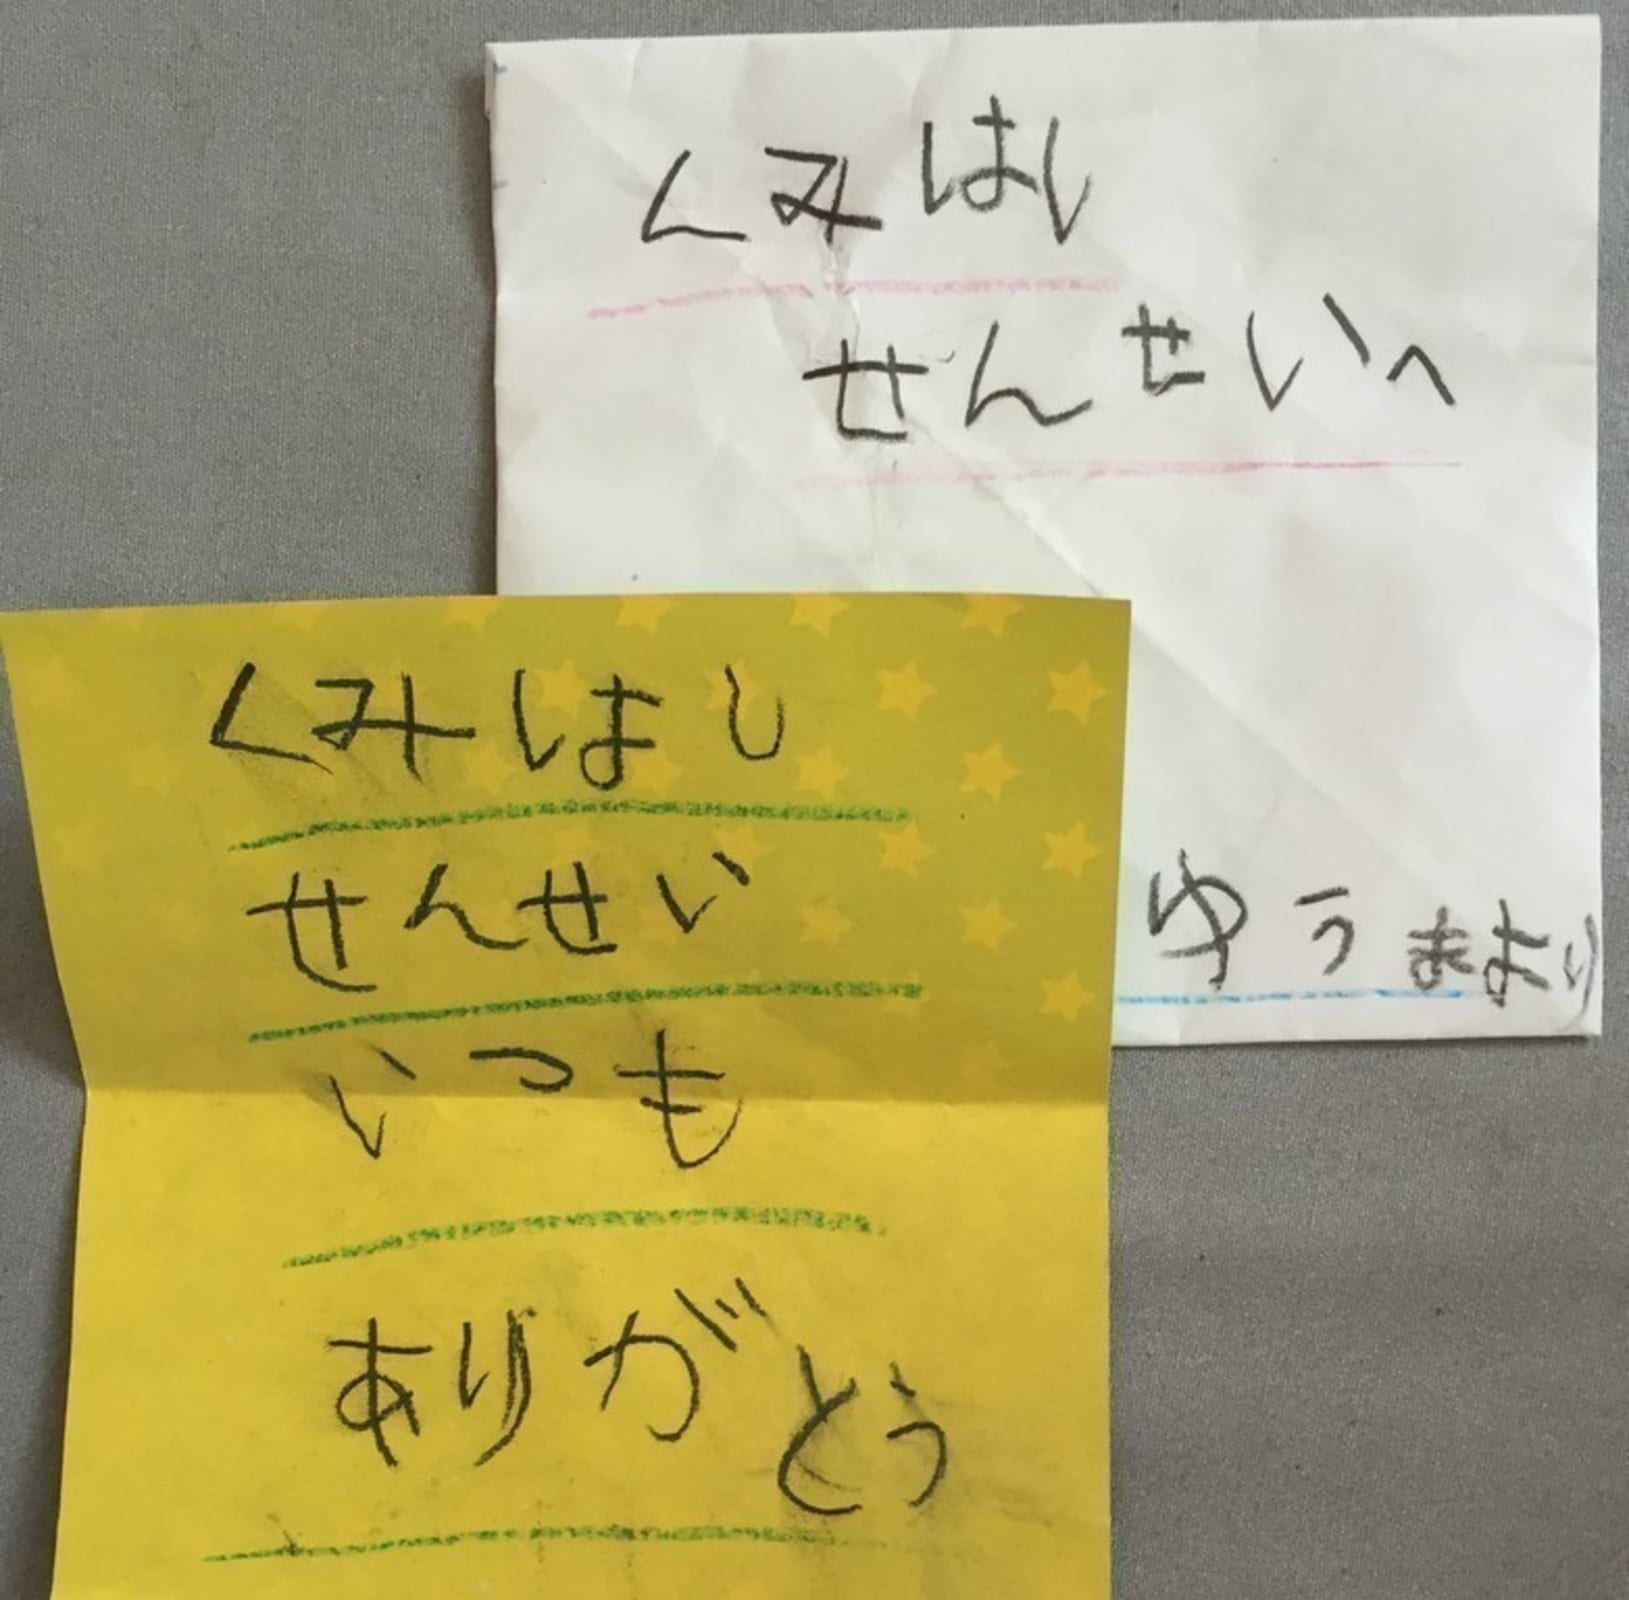 くみはし
せんせいへ
ゆうまより
くみはし
せんせい
いつも
ありがとう